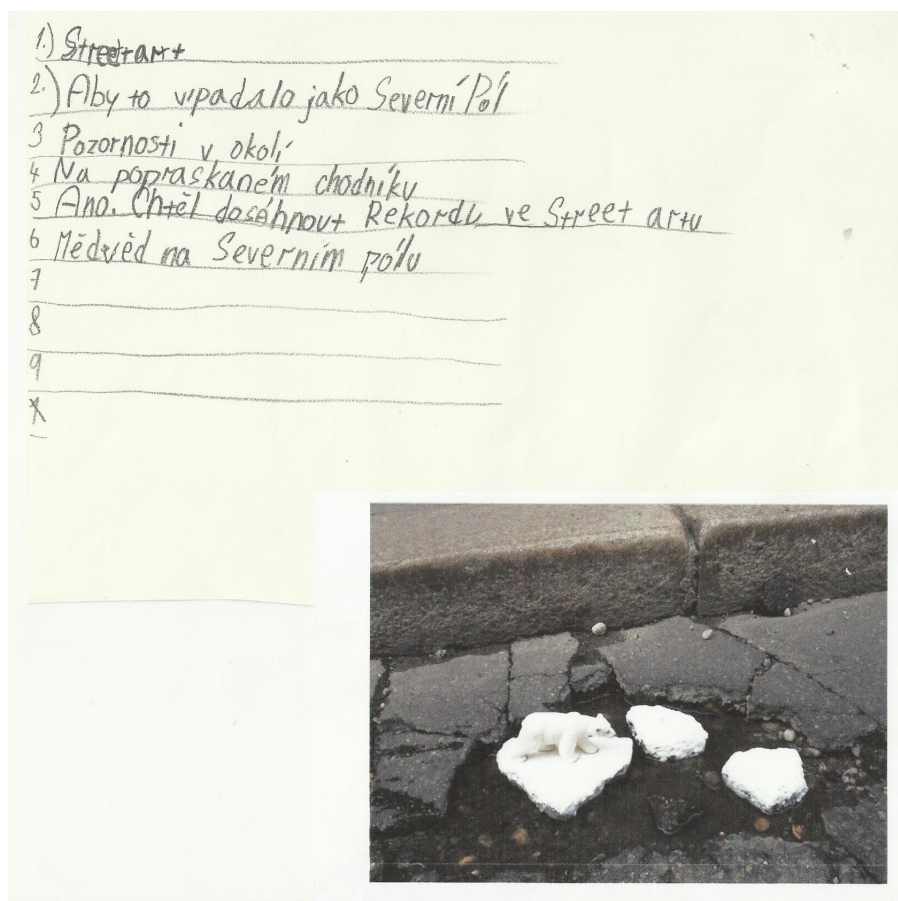 1.) Streetart
2.) Aby to vipadalo jako Severní Pól
3 Pozornosti v okolí
4 Na popraskaném chodníku
5 Ano. Chtěl dosáhnout Rekordu ve Street artu
6 Mědvěd na Severním pólu
7
8
9